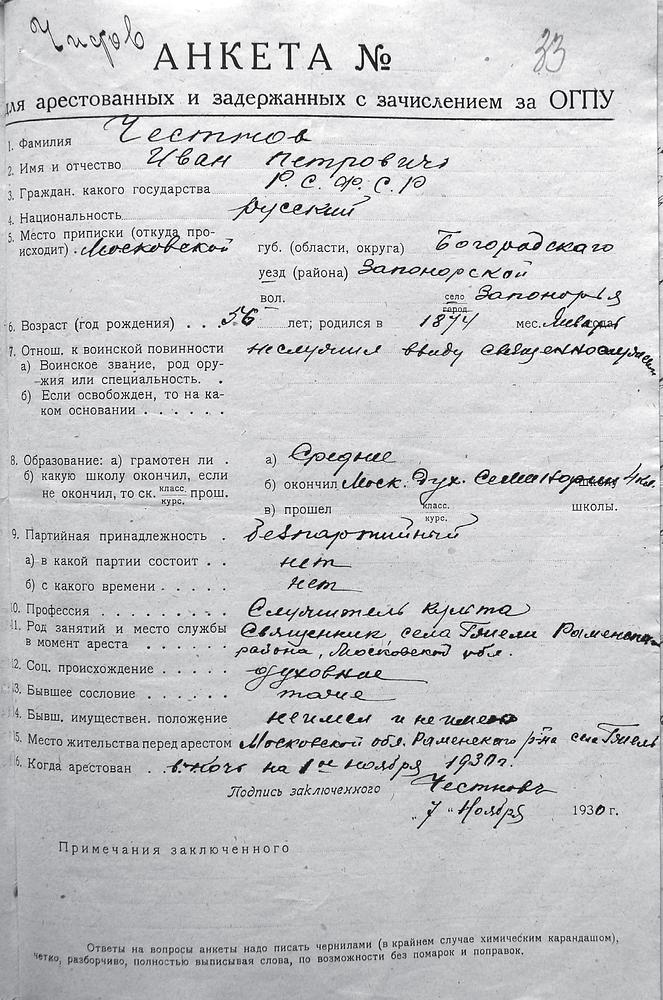 АНКЕТА №
33
для арестованных и задержанных с зачислением за ОГПУ
1. Фамилия Честнов
2. Имя и отчество Иван Петровичъ
3. Граждан. какого государства Р.С.Ф.С.Р
4. Национальность русский
5. Место приписки (откуда про-
исходит) Московской губ. (области, округа) Богородскаго
уезд (района) Запонорской
вол. село Запонорья
город
6. Возраст (год рождения) . . . 56 лет; родился в 1874 мес. Января
7. Отнош. к воинской повинности неслужил ввиду
а) Воинское звание, род ору-
-жия или специальность. .
б) Если освобожден, то на ка-
ком основании . . . . . .
8. Образование: а) грамотен ли . а) Средние
б) какую школу окончил, если б) окончил Моск. Дух. Семинарии школы 4 кл.
не окончил, то ск. класс. курс. прош.
в) прошел класс. курс. школы.
9. Партийная принадлежность . безпартийный
а) в какой партии состоит . . нет
б) с какого времени . . . . . нет
10. Профессия . . . . . . . . . Служитель культа
11. Род занятий и место службы Священник, села Гжели Раменского
в момент ареста . . . . . . района, Московской обл.
12. Соц. происхождение . . . . духовное
13. Бывшее сословие . . . . . . тоже
14. Бывш. имуществен. положение неимел и неимею
15. Место жительства перед арестом Московской обл. Раменского р-на села Гжель
16. Когда арестован . . в ночь на 1ое ноября 1930 г.
Подпись заключенного Честновъ
„7" Ноября 1930 г.
Примечания заключенного
Ответы на вопросы анкеты надо писать чернилами (в крайнем случае химическим карандашом),
четко, разборчиво, полностью выписывая слова, по возможности без помарок и поправок.